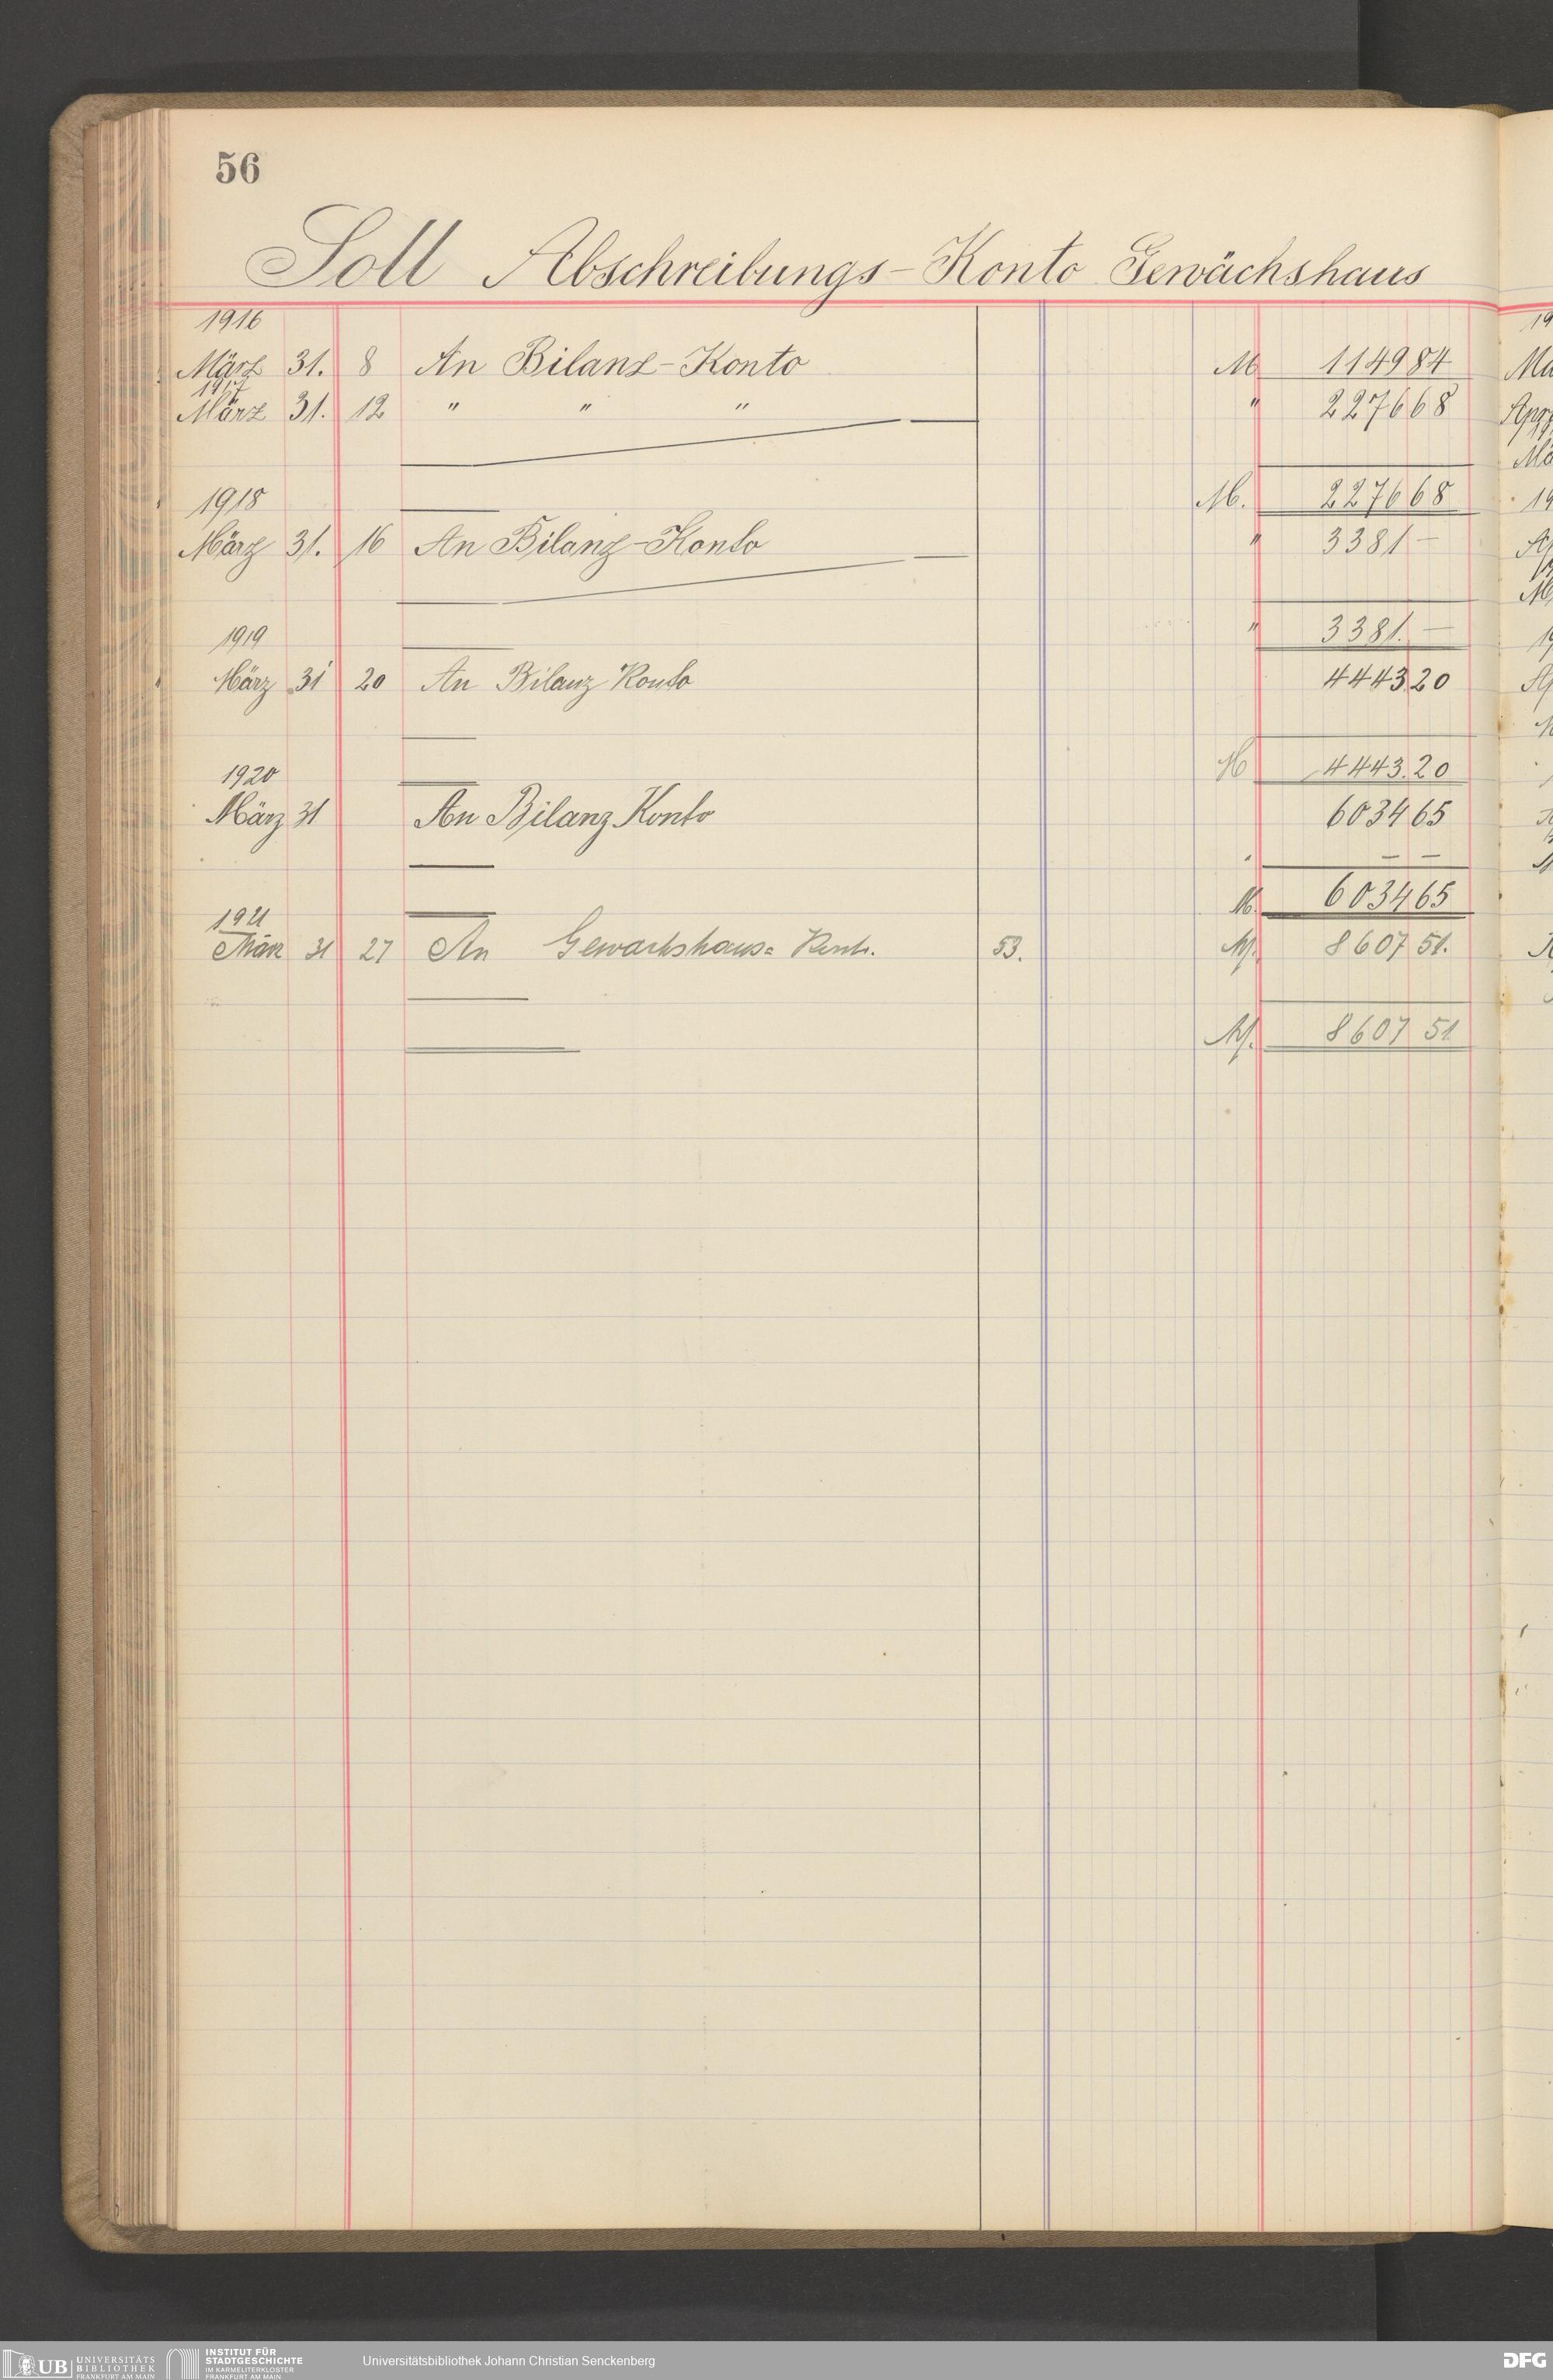 56
Soll Abschreibungs-Konto Gewächshaus
1916
März 31. 8 An Bilanz-Konto M 1149 84
1917
März 31. 12 " " " " 2276 68
M. 2276 68
1918
März 31. 16 An Bilanz-Konto " 3381 —
" 3381. —
1919
März 31 20 An Bilanz Konto 4443 20
M 4443.20
1920
März 31 An Bilanz Konto 6034 65
M. 6034 65
1921
März 31 27 An Gewachshaus= Konto. 53. M. 8607 51.
M. 8607 51
UB UNIVERSITÄTS BIBLIOTHEK FRANKFURT AM MAIN
INSTITUT FÜR STADTGESCHICHTE IM KARMELITERKLOSTER FRANKFURT AM MAIN
Universitätsbibliothek Johann Christian Senckenberg
DFG